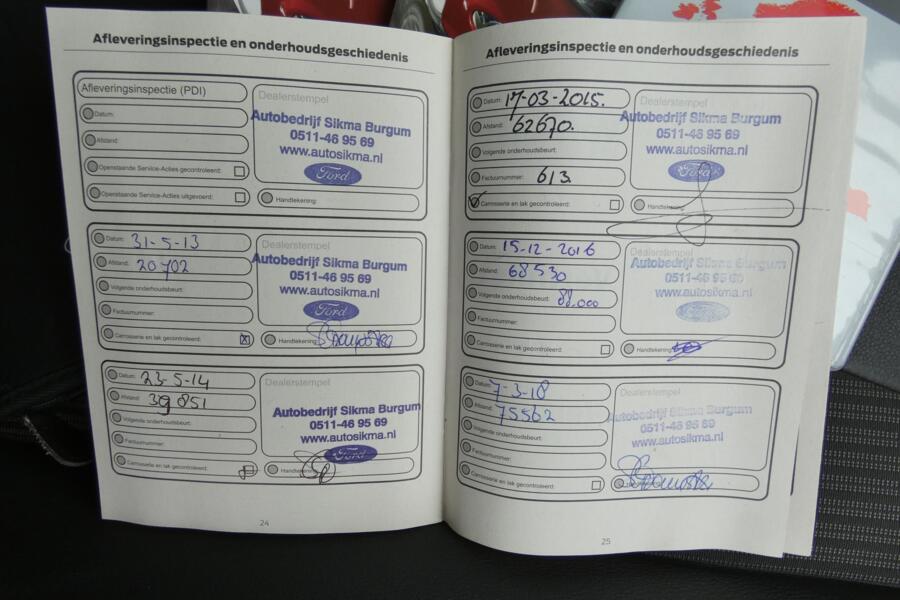 Afleveringsinspectie en onderhoudsgeschiedenis
Afleveringsinspectie (PDI)
Datum:
Afstand:
Openstaande Service-Acties gecontroleerd:
Openstaande Service-Acties uitgevoerd:
Dealerstempel
Autobedrijf Sikma Burgum
0511-46 95 69
www.autosikma.nl
Ford
Handtekening:
Datum: 31-5-13
Afstand: 20702
Volgende onderhoudsbeurt:
Factuurnummer:
Carrosserie en lak gecontroleerd: X
Dealerstempel
Autobedrijf Sikma Burgum
0511-46 95 69
www.autosikma.nl
Ford
Handtekening:
Datum: 23-5-14
Afstand: 39851
Volgende onderhoudsbeurt:
Factuurnummer:
Carrosserie en lak gecontroleerd:
Dealerstempel
Autobedrijf Sikma Burgum
0511-46 95 69
www.autosikma.nl
Ford
Handtekening:
24
Afleveringsinspectie en onderhoudsgeschiedenis
Datum: 17-03-2015.
Afstand: 62670.
Volgende onderhoudsbeurt:
Factuurnummer: 613.
Carrosserie en lak gecontroleerd:
Dealerstempel
Autobedrijf Sikma Burgum
0511-46 95 69
www.autosikma.nl
Ford
Handtekening:
Datum: 15-12-2016
Afstand: 68530
Volgende onderhoudsbeurt: 88.000
Factuurnummer:
Carrosserie en lak gecontroleerd:
Dealerstempel
Autobedrijf Sikma Burgum
0511-46 95 69
www.autosikma.nl
Ford
Handtekening:
Datum: 7-3-18
Afstand: 75562
Volgende onderhoudsbeurt:
Factuurnummer:
Carrosserie en lak gecontroleerd:
Dealerstempel
Autobedrijf Sikma Burgum
0511-46 95 69
www.autosikma.nl
25